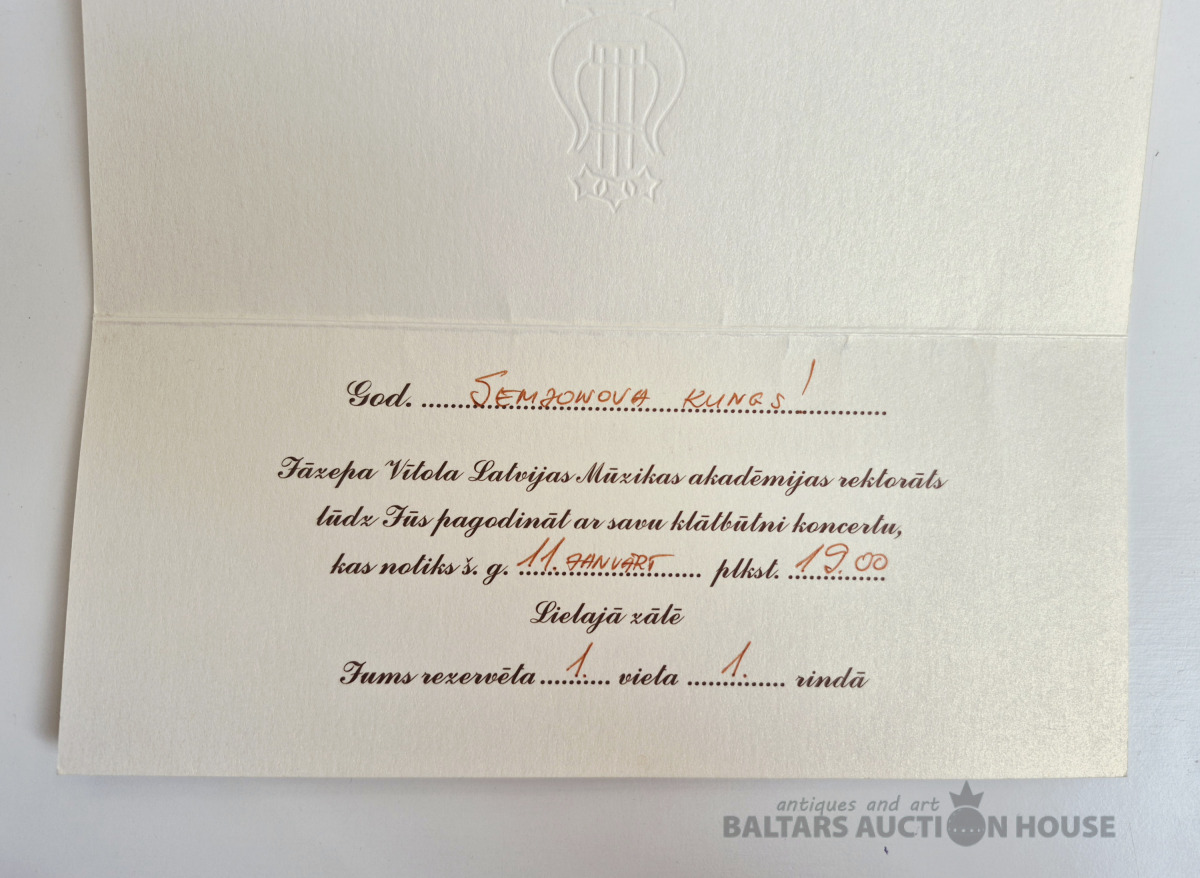 God. Semjonova kungs!
Jāzepa Vītola Latvijas Mūzikas akadēmijas rektorāts
lūdz Jūs pagodināt ar savu klātbūtni koncertu,
kas notiks š. g. 11. janvārī plkst. 19.00
Lielajā zālē
Jums rezervēta 1. vieta 1. rindā
antiques and art
BALTARS AUCTION HOUSE